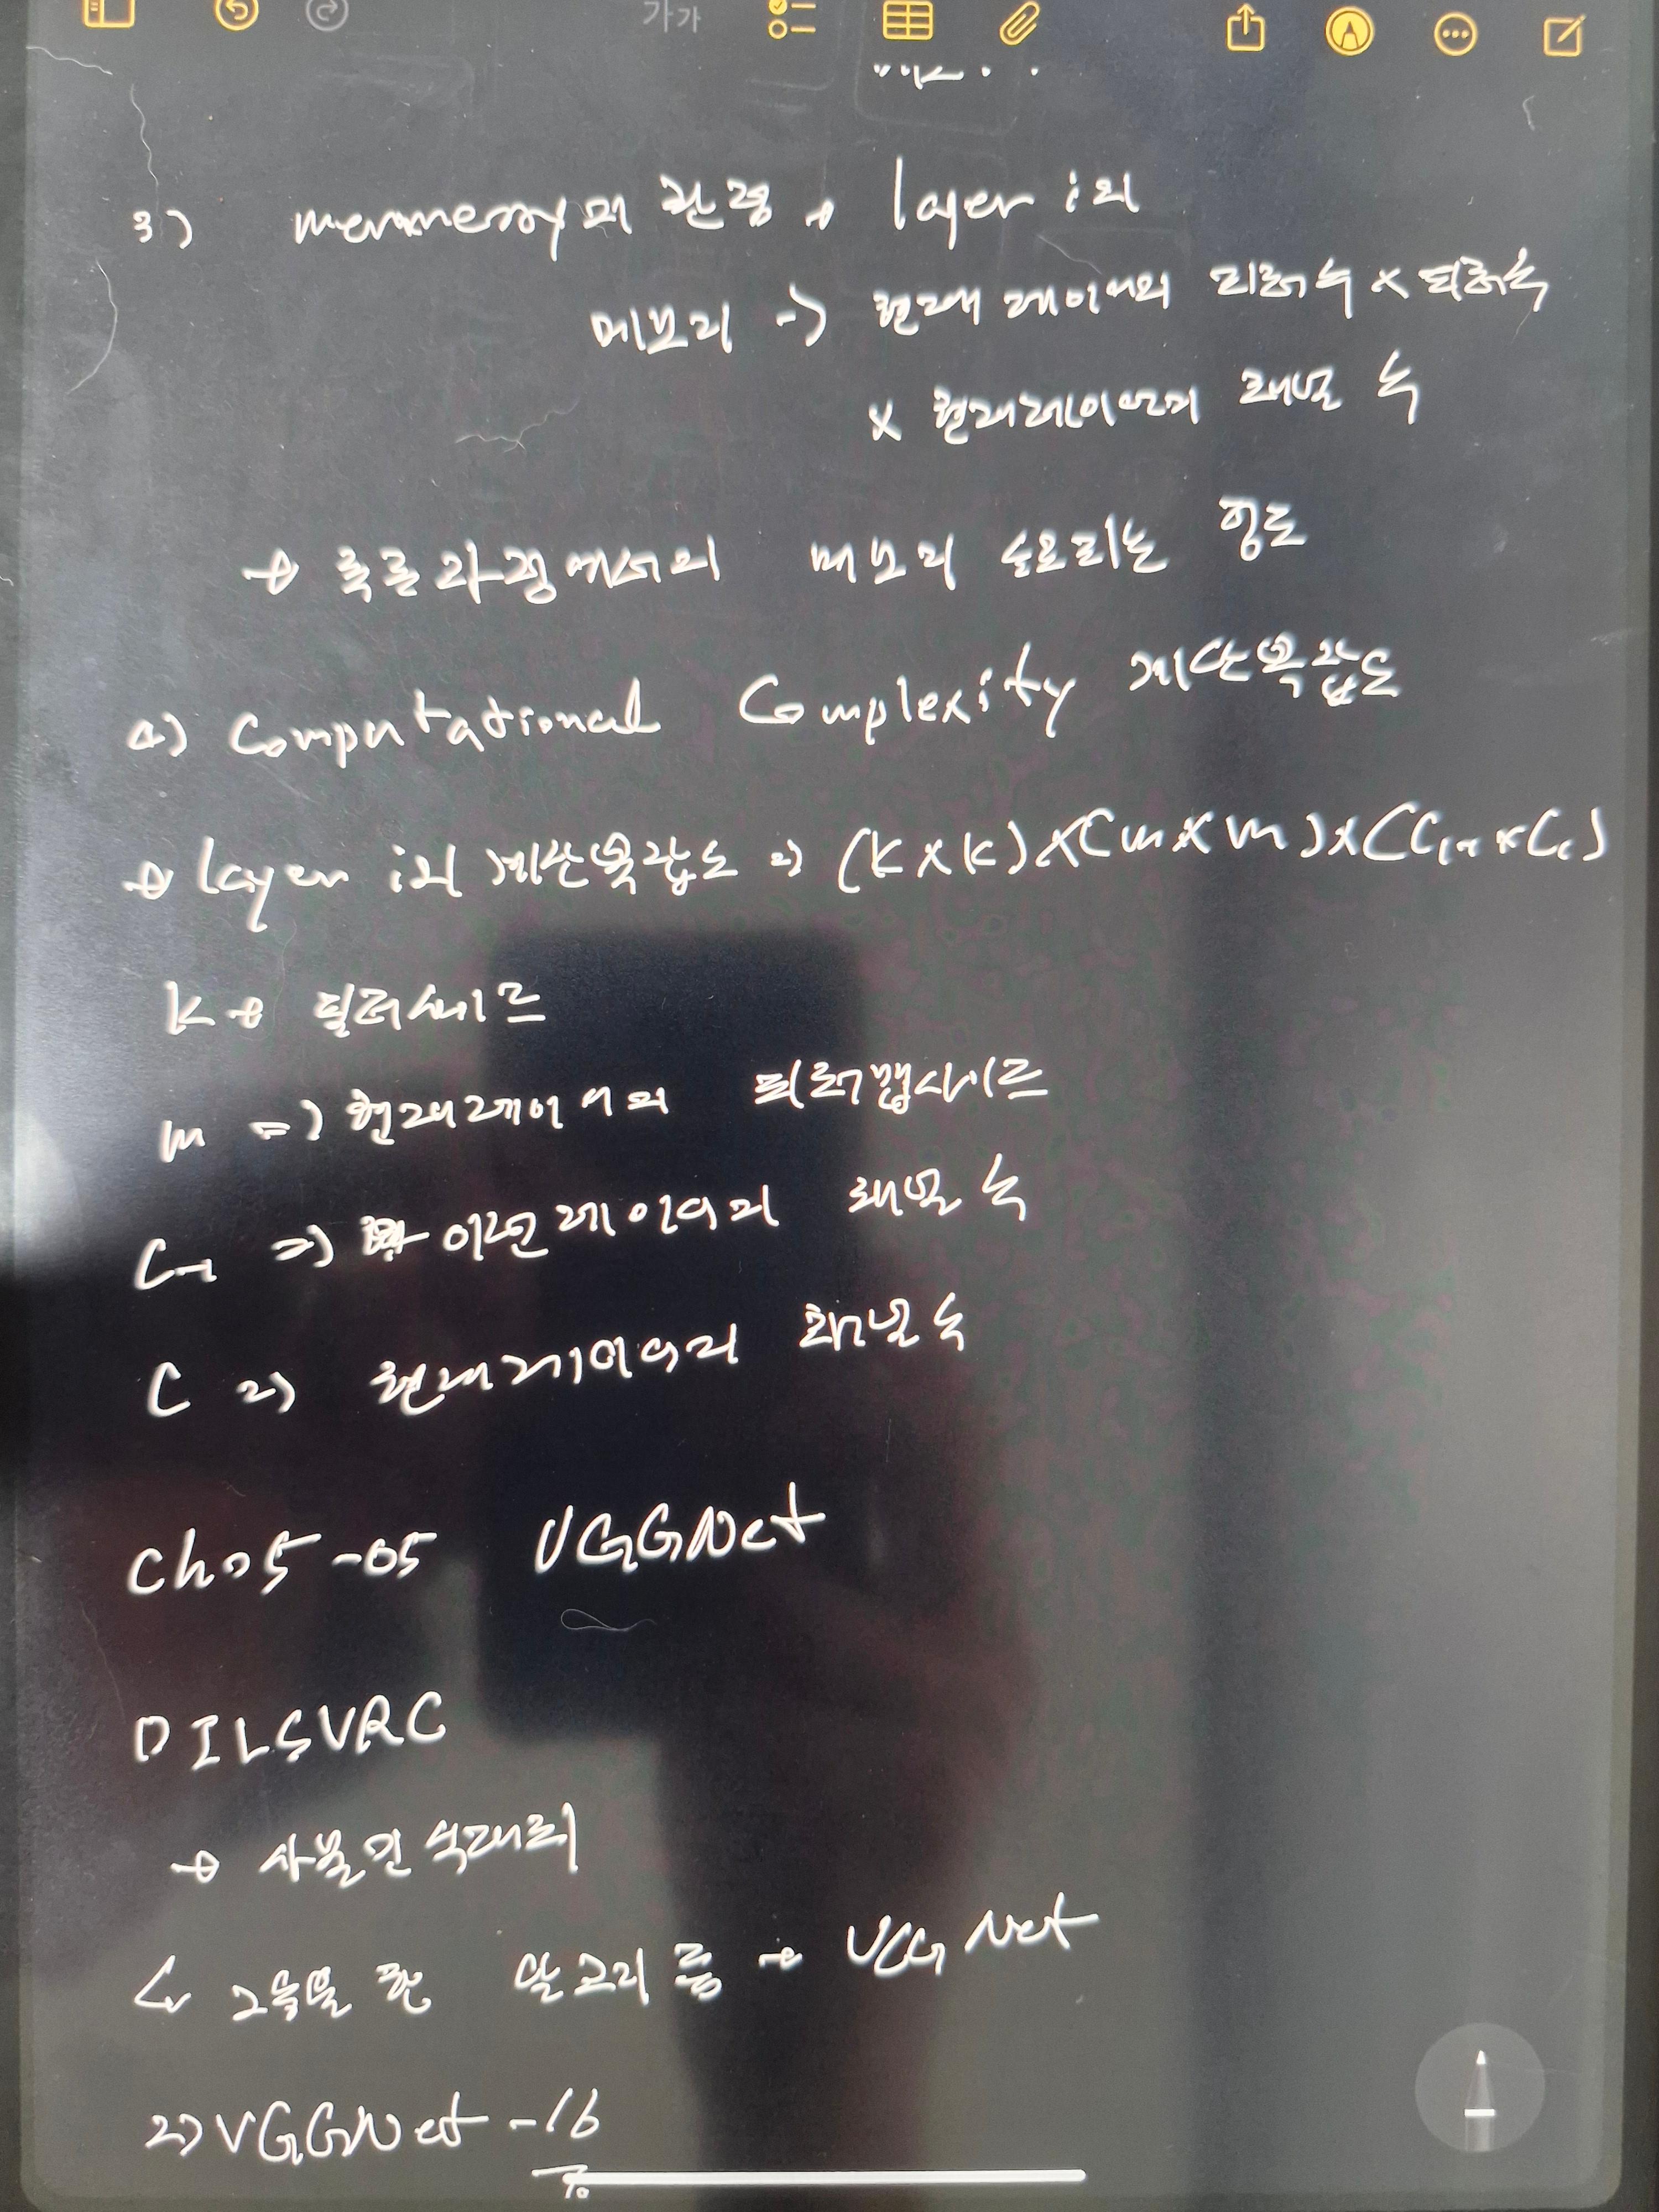 가가
3) memmeory의 관령 → layer i의
메모리 => 현재 레이어의 피쳐수 x 피쳐수
x 현재레이어의 채널 수
→ 추론과정에서의 메모리 소요되는 정도
4) Computational Complexity 계산복잡도
→ layer i의 계산복잡도 => (K x K) x (m x m) x (Ci-1 x Ci)
K → 필터사이즈
m => 현재레이어의 피쳐맵사이즈
C-1 => 이전레이어의 채널 수
C => 현재레이어의 채널 수
Ch05-05 VGGNet
1) ILSVRC
→ 사물인식대회
↳ 2등을 한 알고리즘 → VGGNet
2) VGGNet-16